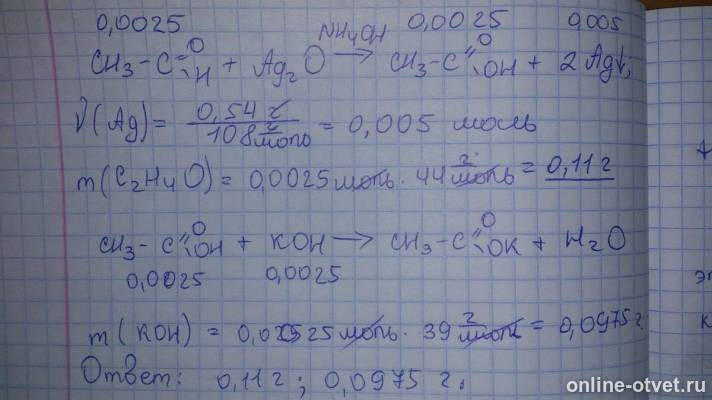 0,0025 0,0025 0,005
CH₃-C(=O)H + Ag₂O →(NH₄OH) CH₃-C(=O)OH + 2Ag↓;
ν(Ag) = 0,54 г / 108 г/моль = 0,005 моль
m(C₂H₄O) = 0,0025 моль · 44 г/моль = 0,11 г
CH₃-C(=O)OH + KOH → CH₃-C(=O)OK + H₂O
0,0025 0,0025
m(KOH) = 0,0025 моль · 39 г/моль = 0,0975 г
Ответ: 0,11 г; 0,0975 г.
эт
к
online-otvet.ru